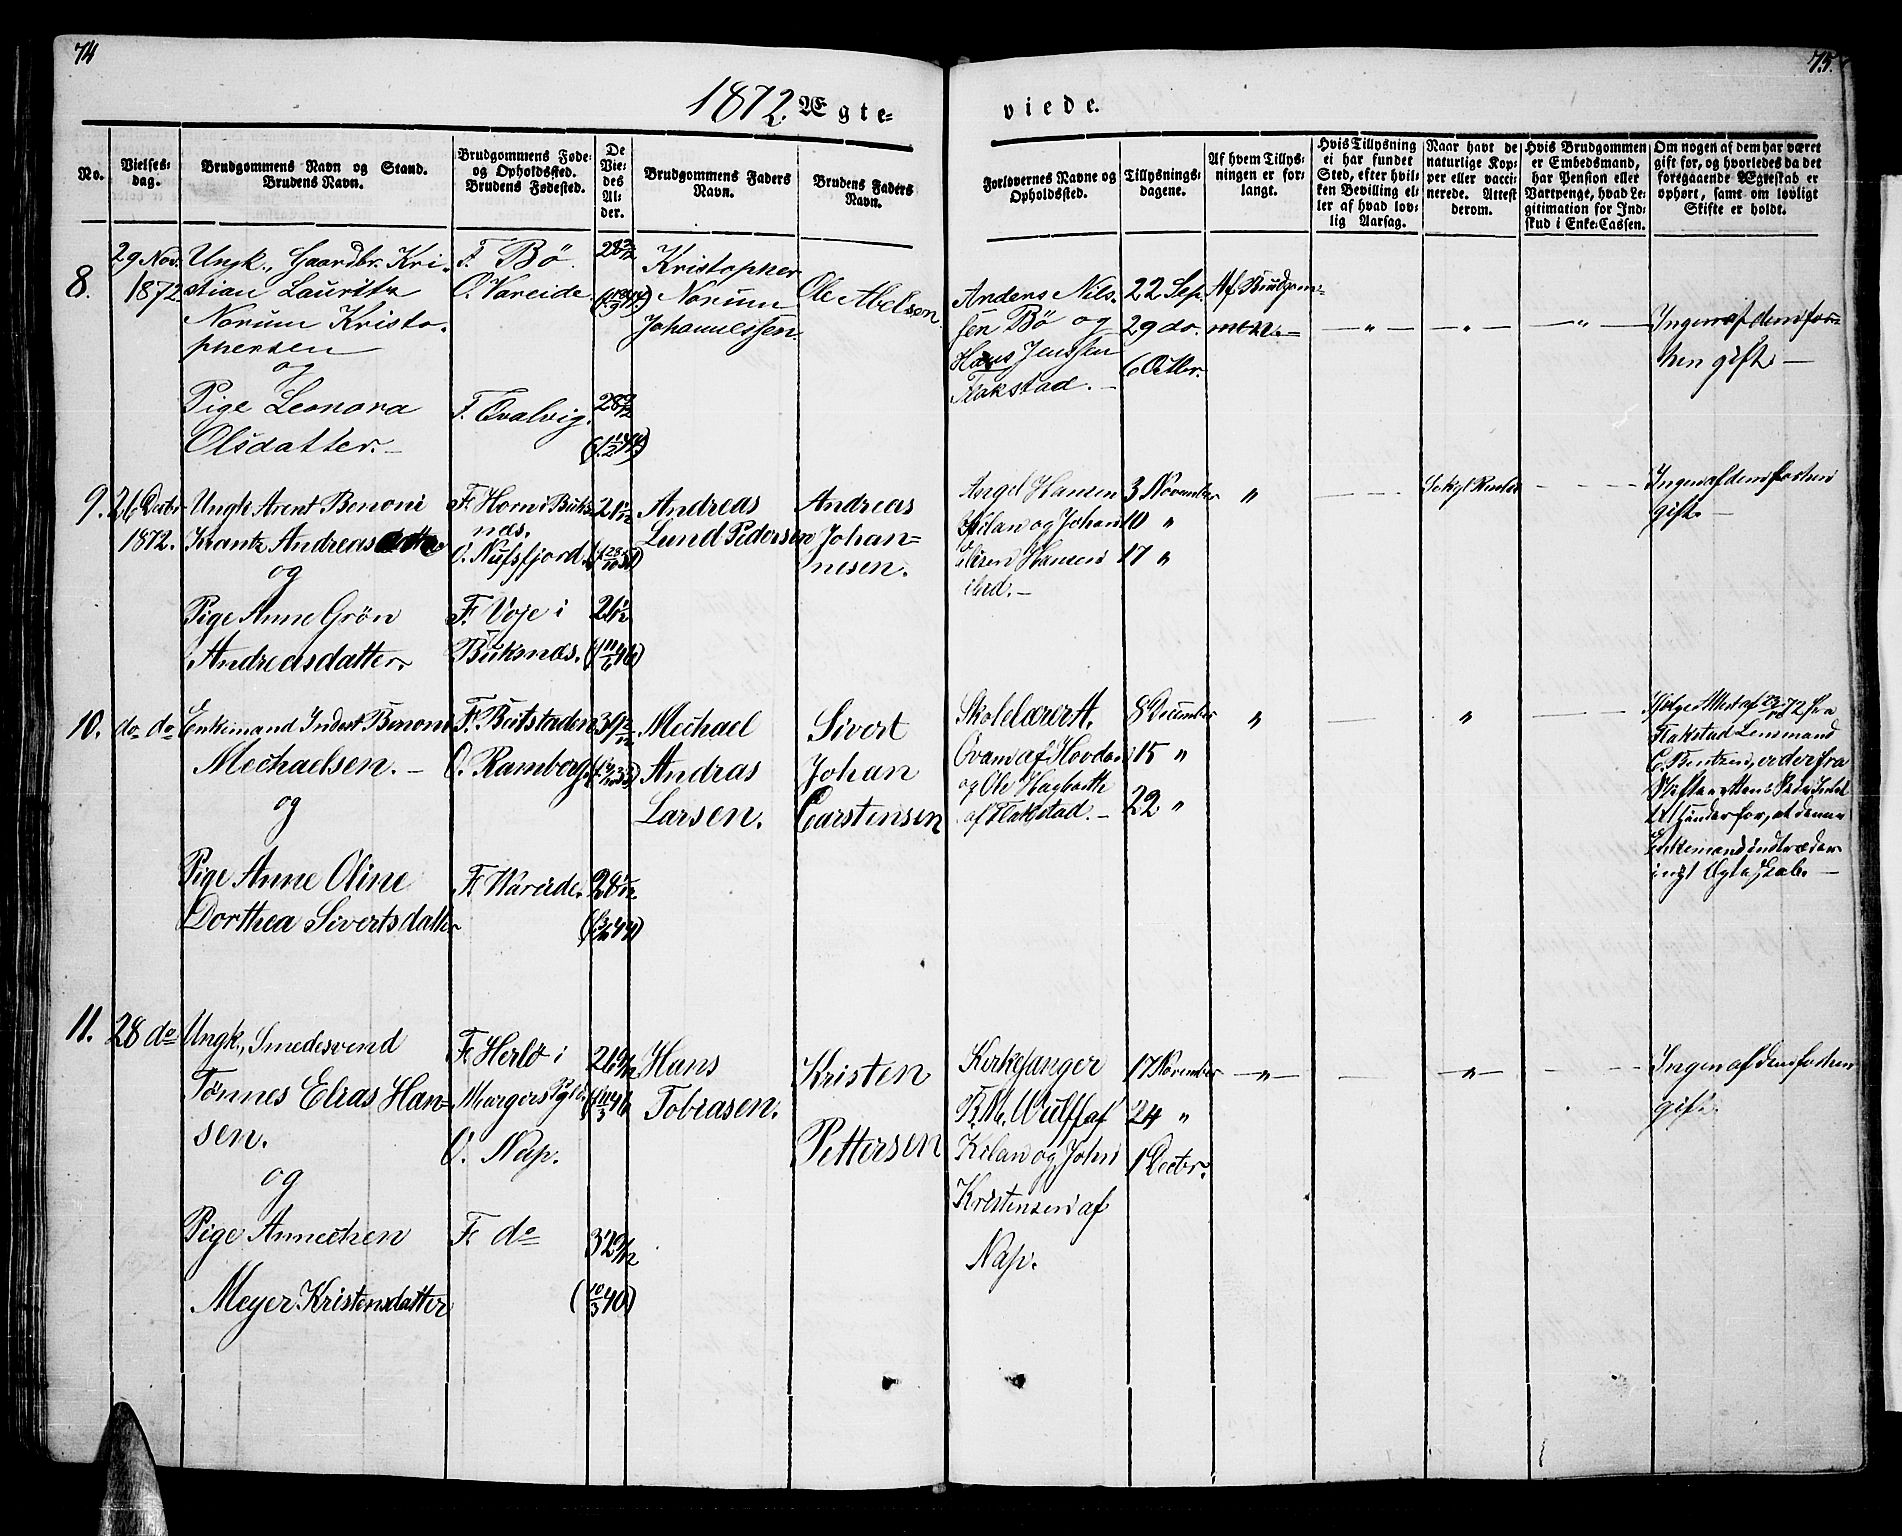 74
75.
1872. Ægte-
viede.
No.
Vielses-
dag.
Brudgommens Navn og Stand.
Brudens Navn.
Brudgommens Føde-
og Opholdssted.
Brudens Fødested.
De
Vie-
des
Al-
der.
Brudgommens Faders
Navn.
Brudens Faders
Navn.
Forlovernes Navne og
Opholdssted.
Tillysnings-
dagene.
Af hvem Tillys-
ningen er for-
langt.
Hvis Tillysning
ei har fundet
Sted, efter hvil-
ken Bevilling el-
ler af hvad lov-
lig Aarsag.
Naar havt de
naturlige Kop-
per eller vacci-
nerede. Attest
derom.
Hvis Brudgommen
er Embedsmand,
har Pension eller
Vartpenge, hvad Le-
gitimation for Ind-
skud i Enke-Cassen.
Om nogen af dem har været
gift før, og hvorledes da det
foregaaende Ægteskab er
ophørt, samt om lovligt
Skifte er holdt.
8.
29 Nov.
1872
Ungk., Gaardbr. Kri-
stian Lauritz
Norum Kristo-
phersen
og
Pige Leonora
Olsdatter.
F. Bø.
O. Vareide.
F. Qvalvig.
28
28
Kristopher
Norum
Johannessen.
Ole Abelsen.
Anders Nils-
sen Bø og
Hans Jenssen
Flakstad.
22 Sep.
29 do.
6 Octbr.
Af Brudgom-
men.
Ingen af dem før-
hen gift
9.
26 Decbr
1872.
Ungk Arent Benoni
Krantz Andreas
og
Pige Anne Grøn
Andreasdatter.
F. Horn i Buks-
næs.
O. Nufsfjord.
F. Voje i
Buksnæs.
Andreas
Lund Pedersen
Andreas
Johan-
nesen.
Angel Hansen
Kilan og Johan
Hansen
ibid.
3 November
10 "
17 "
"
Ingen af dem forhen
gift.
10.
do do
Enkemand Indest Benoni
Mechaelsen.
og
Pige Anne Oline
Dorthea Sivertsdatter
F. Beitstaden
O. Ramberg
F. Wareide.
Mechael
Andras
Larsen.
Sivert
Johan
Carstensen
Skolelærer A.
Qvam af Hovden
og Ole Hagbarth
af Flakstad.
8 December
15 "
22 "
"
"
Ifølge Attest af 72 fra
Flakstad Lensmand
er der fra
Skifterettens Side Intet
til Hinder for, at denne
Enkemand indtræder
i nyt Ægteskab.
11.
28 do
Ungk., Smedesvend
Tønnes Elias Han-
sen.
og
Pige Annechen
Meyer Kristensdatter
F. Herlø i
O. Nap.
F. do
Hans
Tobiasen.
Kristen
Pettersen
Kirkesanger
Wulff af
Kilan og John
Kristensen af
Nap.
17 November
24 "
1 Decbr.
"
"
Ingen af dem forhen
gift.